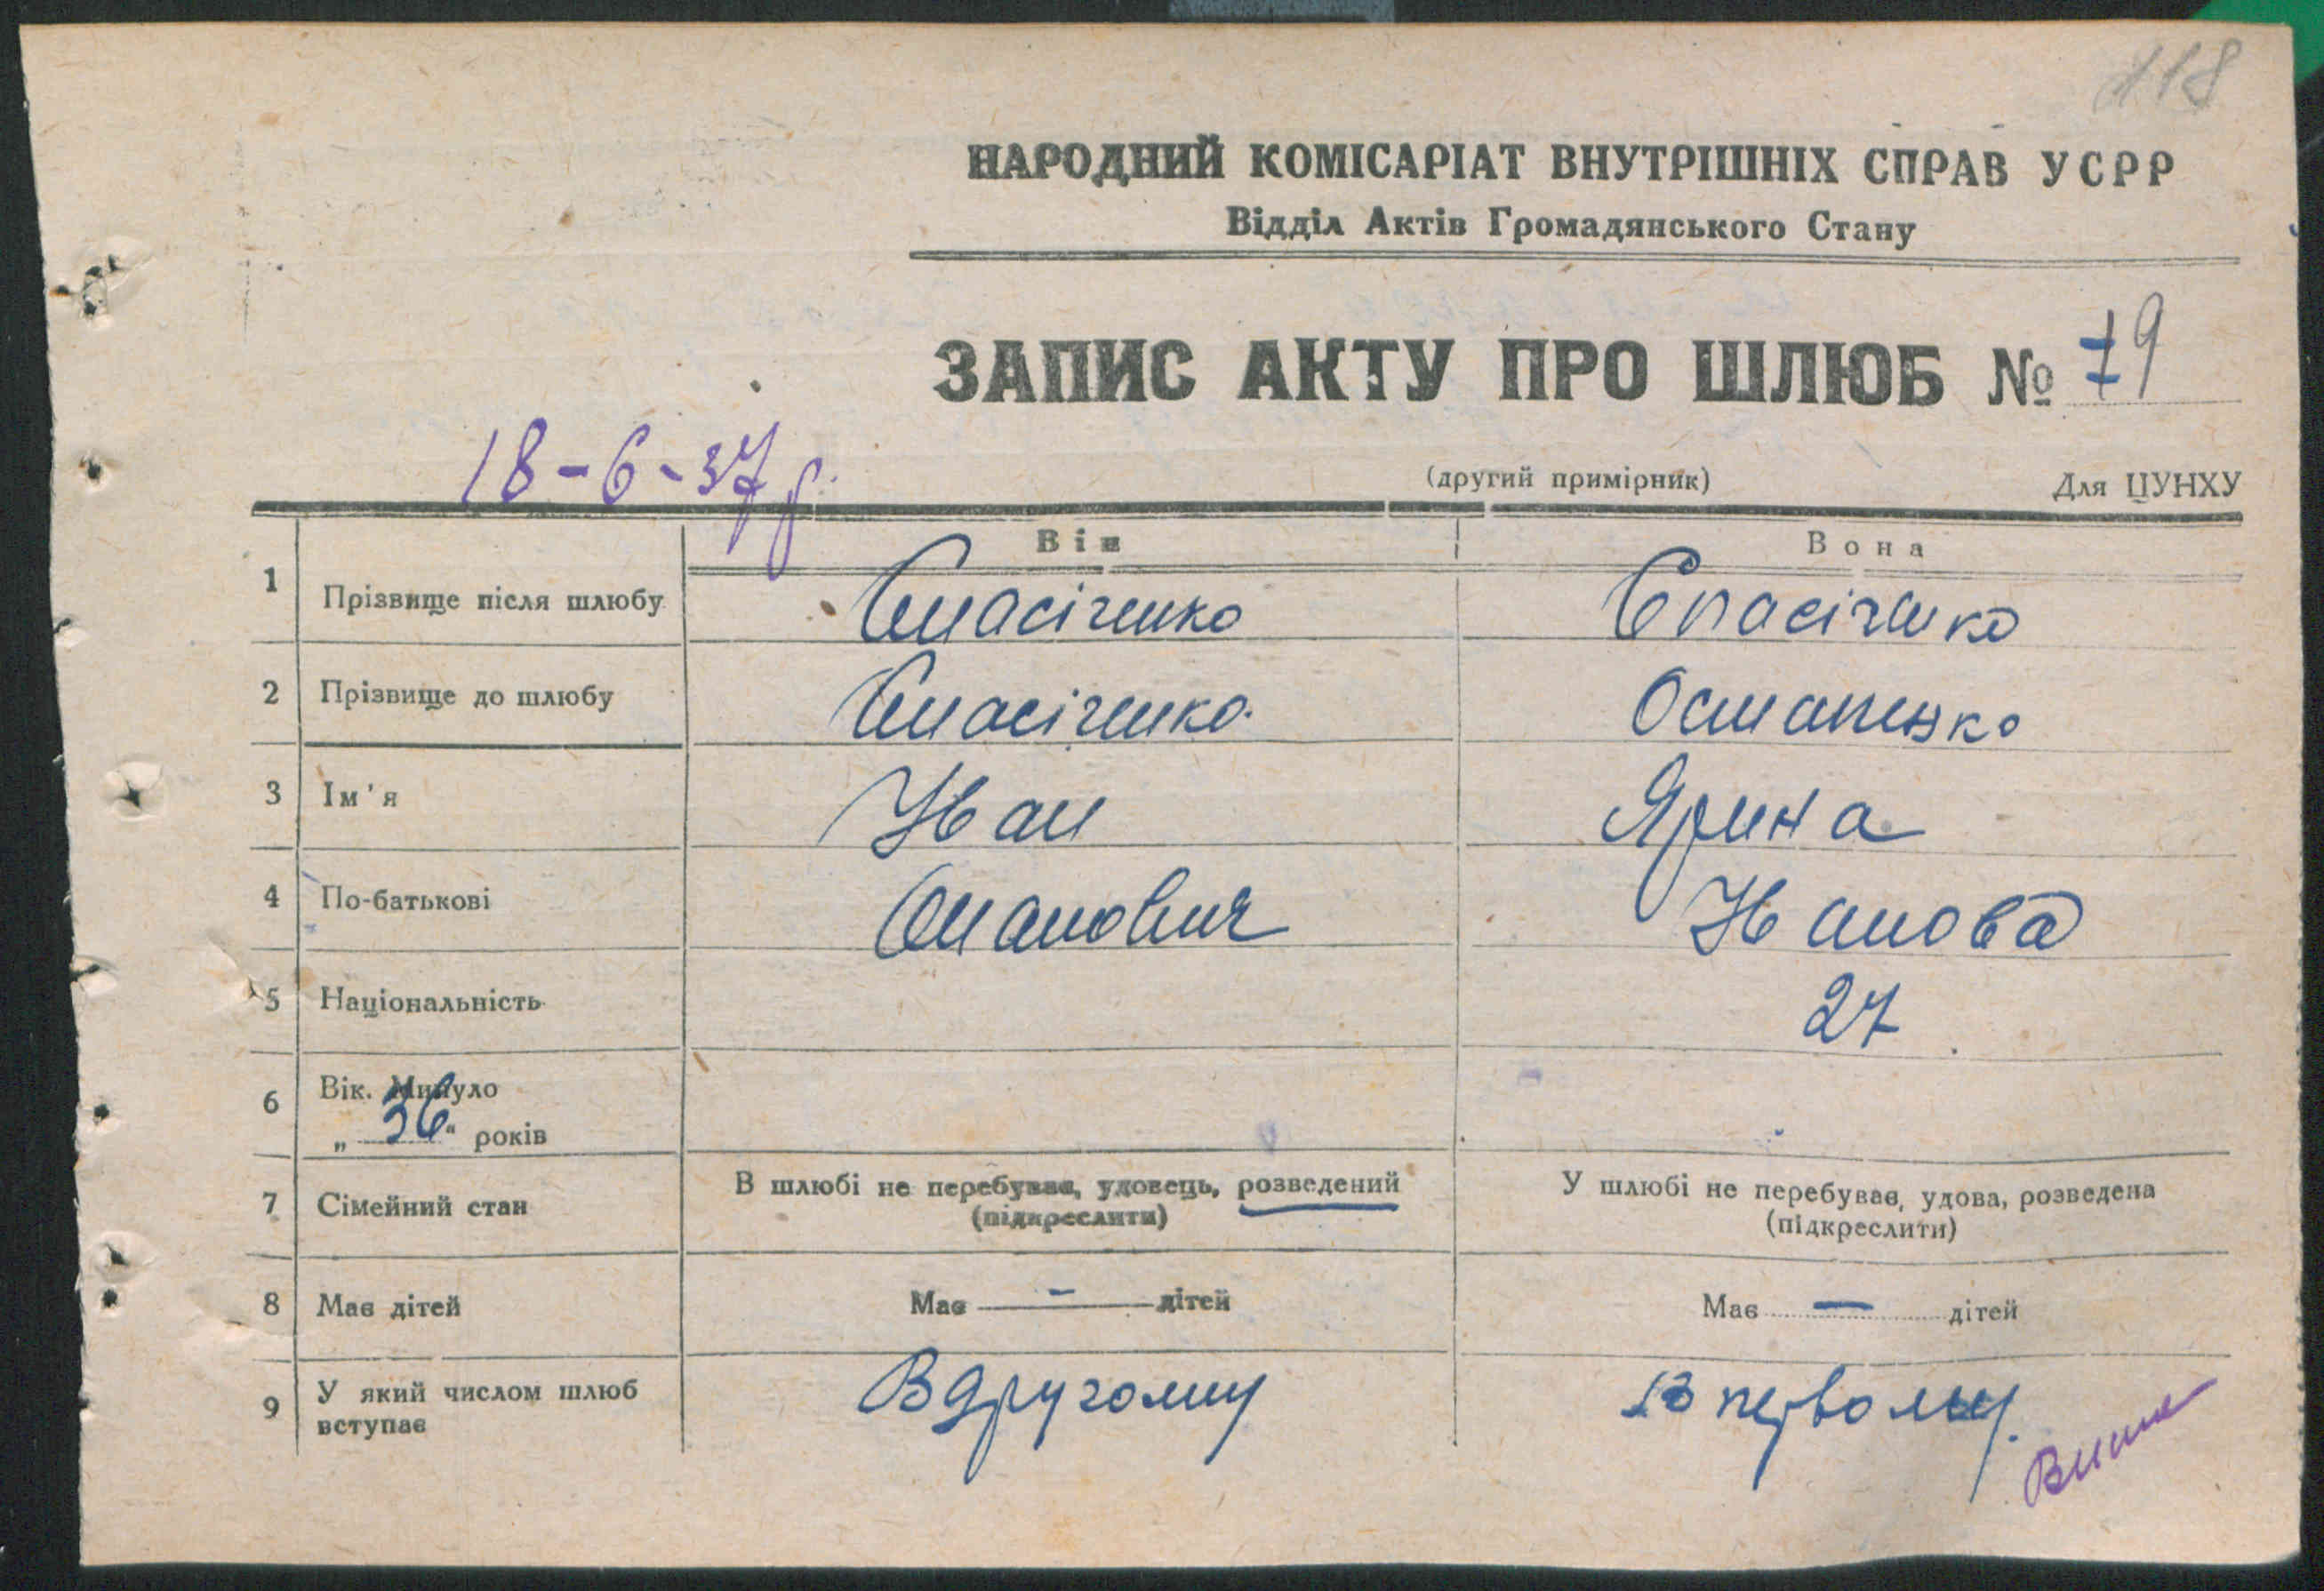 118
НАРОДНИЙ КОМІСАРІАТ ВНУТРІШНІХ СПРАВ УСРР
Відділ Актів Громадянського Стану
ЗАПИС АКТУ ПРО ШЛЮБ № 79
18-6-37 р.
(другий примірник) Для ЦУНХУ
Він Вона
1 Прізвище після шлюбу Спасіченко Спасіченко
2 Прізвище до шлюбу Спасіченко Остапенко
3 Ім'я Иван Ярина
4 По-батькові Ивановa
5 Національність 27
6 Вік. Минуло
„ 36 “ років
7 Сімейний стан В шлюбі не перебував, удовець, розведений У шлюбі не перебував, удова, розведена
(підкреслити) (підкреслити)
8 Має дітей Має — дітей Має — дітей
9 У який числом шлюб вступає В другому В первому